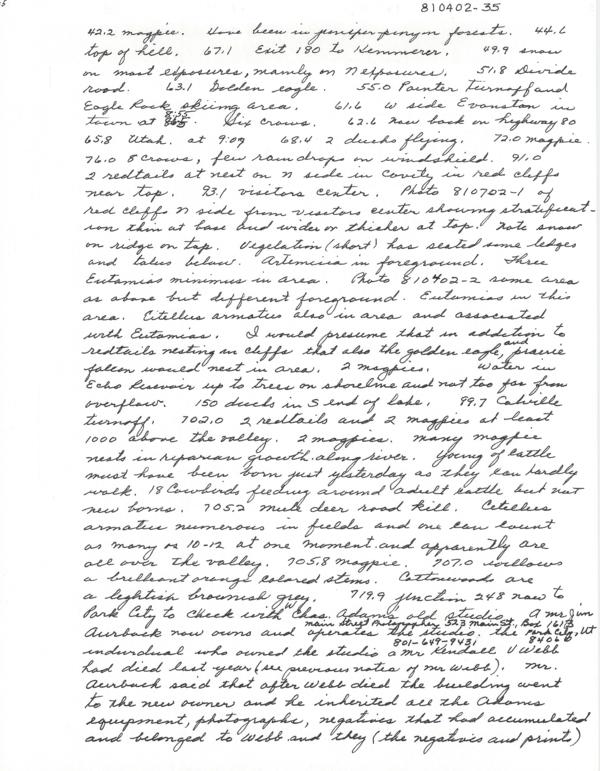 810402-35
42.2 magpie. Have been in juniper pinyon forests. 44.6
top of hill. 67.1 Exit 180 to Kemmerer. 49.9 snow
on most exposures, mainly on N exposures. 51.8 Divide
road. 63.1 Golden eagle. 55.0 Painter turnoff and
Eagle Rock skiing area. 61.6 W side Evanston in
town at Six crows. 62.6 now back on highway 80
65.8 Utah. at 9:09 68.4 2 ducks flying. 72.0 magpie.
76.0 5 crows, few rain drops on windshield. 91.0
2 redtails at nest on N side in cavity in red cliffs
near top. 93.1 visitors center. Photo 810702-1 of
red cliffs N side from visitors center showing stratificat-
ion thin at base and wider or thicker at top. Note snow
on ridge on top. Vegetation (short) has seated some ledges
and talus below. Artemisia in foreground. Three
Eutamias minimus in area. Photo 810402-2 same area
as above but different foreground. Eutamias in this
area. Citellus armatus also in area and associated
with Eutamias. I would presume that in addition to
redtails nesting in cliffs that also the golden eagle, and prairie
falcon would nest in area. 2 magpies. Water in
Echo Resevoir up to trees on shoreline and not too far from
overflow. 150 ducks in S end of lake. 99.7 Coalville
turnoff. 702.0 2 redtails and 2 magpies at least
1000 above the valley. 2 magpies. Many magpie
nests in riparian growth along river. Young of cattle
must have been born just yesterday as they can hardly
walk. 18 Cowbirds feeding around adult cattle but not
new borns. 705.2 mule deer road kill. Citellus
armatus numerous in fields and one can count
as many as 10-12 at one moment and apparently are
all over the valley. 705.8 magpie. 707.0 willows
a brilliant orange colored stems. Cottonwoods are
a lightish brownish grey. 719.9 junction 248 now to
Park City to check with Chas. W Adams old studio. A Mr. Jim
Main Street Photographer 523 Main St., Box 1613
Aurback now owns and operates the studio. the Park City, Ut
801-649-9431 84060
individual who owned the studio a Mr Kendall V Webb
had died last year (see previous notes of Mr Webb). Mr.
Aurback said that after Webb died the building went
to the new owner and he inherited all the Adams
equipment, photographs, negatives that had accumulated
and belonged to Webb and they (the negatives and prints)